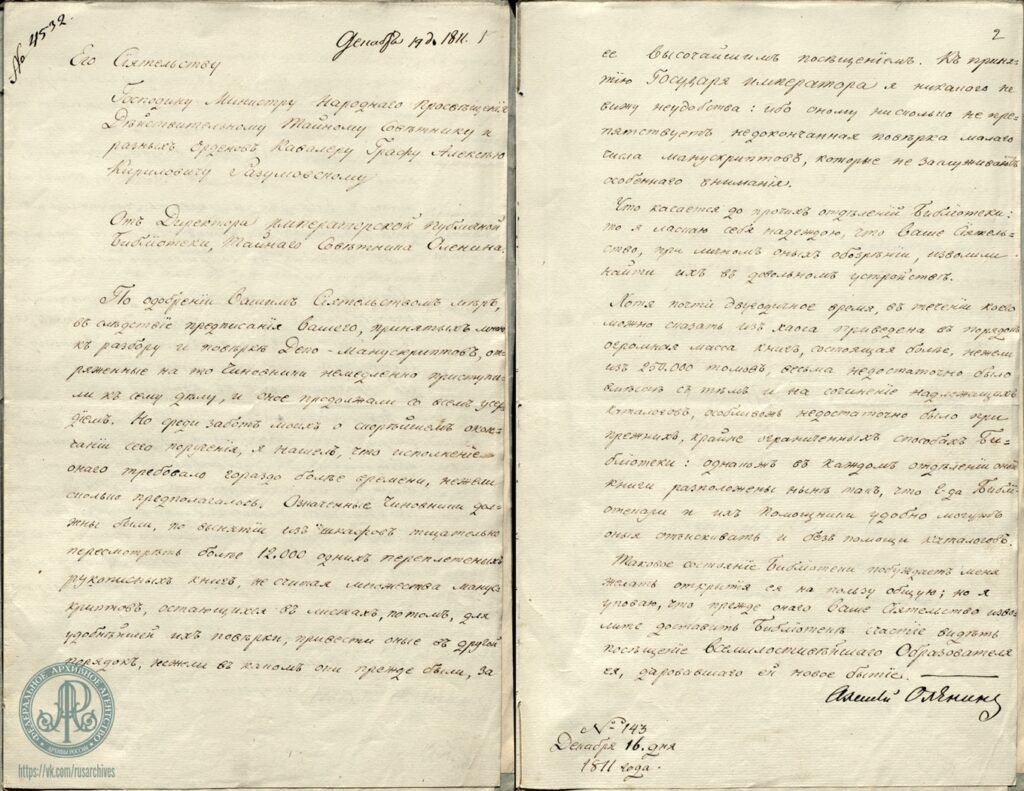 № 4532.
Декабрь 19 д. 1811. 1
Его Сіятельству
Господину Министру Народнаго Просвѣщенія
Дѣйствительному Тайному Совѣтнику и
разныхъ Орденовъ Кавалеру Графу Алексѣю
Кириловичу Разумовскому
Отъ Директора императорской публичной
Библіотеки, Тайнаго Совѣтника Оленина.
По одобреніи Вашимъ Сіятельствомъ мѣръ,
въ слѣдствіе предписанія Вашего, принятыхъ мною
къ разбору и повѣркѣ Депо-Манускриптовъ, опре-
ряженные на то Чиновники немедленно приступи-
ли къ сему дѣлу, и оное продолжали со всемъ усер-
діемъ. Но среди заботъ моихъ о скорѣйшемъ окон-
чаніи сего порученія, я нашелъ, что исполненіе
онаго требовало гораздо болѣе времени, нежели
сколько предполагалось. Означенные Чиновники дол-
жны были, по вынятіи изъ шкафовъ тщательно
пересмотрѣть болѣе 12.000 однихъ переплетенныхъ
рукописныхъ книгъ, не считая множества манус-
криптовъ, остающихся въ листахъ, потомъ, для
удобнѣйшей ихъ повѣрки, привести оные въ другой
порядокъ, нежели въ какомъ они прежде были, за
ФЕДЕРАЛЬНОЕ АРХИВНОЕ АГЕНТСТВО
АРХИВЫ РОССИИ
https://vk.com/rusarchives
2
ее высочайшимъ посѣщеніемъ. Къ приня-
тію Государя императора я никакого не
вижу неудобства: ибо оному нисколько не пре-
пятствуетъ недоконченная повѣрка малаго
числа манускриптовъ, которые не заслуживаютъ
особеннаго вниманія.
Что касается до прочихъ отдѣленій Библіотеки:
то я ласкаю себя надеждою, что Ваше Сіятель-
ство, при личномъ оныхъ обозрѣніи, изволили
найти ихъ въ довольномъ устройствѣ.
Хотя почти двугодичное время, въ теченіи коего
можно сказать изъ хаоса приведена въ порядокъ
огромная масса книгъ, состоящая болѣе, нежели
изъ 250.000 томовъ, весьма недостаточно было
вмѣстѣ съ тѣмъ и на сочиненіе надлежащихъ
каталоговъ, особливо недостаточно было при
прежнихъ, крайне ограниченныхъ способахъ Би-
бліотеки: однакожъ въ каждомъ отдѣленіи оной
книги расположены нынѣ такъ, что Г-да Библі-
отекари и ихъ Помощники удобно могутъ
оныя отыскивать и безъ помощи каталоговъ.
Таковое состояніе Библіотеки побуждаетъ меня
желать открытія ея на пользу общую; но я
уповаю, что прежде онаго Ваше Сіятельство изво-
лите доставить Библіотекѣ счастіе видѣть
посѣщеніе Всемилостивѣйшаго Образователя
ея, даровавшаго ей новое бытіе.
Алексѣй Оленинъ
№ 143
Декабря 16. дня
1811 года.